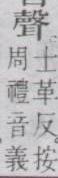 聲
士革反按
周禮音義